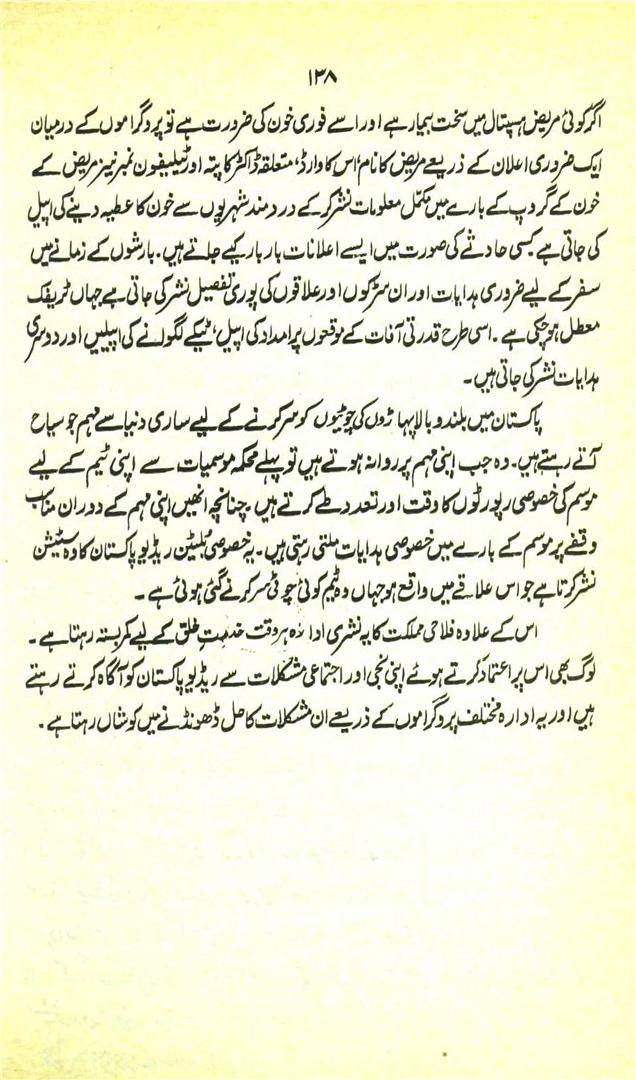 ۱۳۸
اگر کوئی مریض ہسپتال میں سخت بیمار ہے اور اسے فوری خون کی ضرورت ہے تو پروگراموں کے درمیان
ایک ضروری اعلان کے ذریعے مریض کا نام، اس کا وارڈ، متعلقہ ڈاکٹر کا پتہ اور ٹیلیفون نمبر نیز مریض کے
خون کے گروپ کے بارے میں مکمل معلومات نشر کر کے دردمند شہریوں سے خون کا عطیہ دینے کی اپیل
کی جاتی ہے کسی حادثے کی صورت میں ایسے اعلانات بار بار کیے جاتے ہیں۔ بارشوں کے زمانے میں
سفر کے لیے ضروری ہدایات اور ان سڑکوں اور علاقوں کی پوری تفصیل نشر کی جاتی۔ ہے جہاں ٹریفک
معطل ہو چکی ہے۔ اسی طرح قدرتی آفات کے موقعوں پر امداد کی اپیل، ٹیکے لگوانے کی اپیلیں اور دوسری
ہدایات نشر کی جاتی ہیں۔
پاکستان میں بلند و بالا پہاڑوں کی چوٹیوں کو سر کرنے کے لیے ساری دنیا سے مہم جو سیاح
آتے رہتے ہیں۔ وہ جب اپنی مہم پر روانہ ہوتے ہیں تو پہلے محکمہ موسمیات سے اپنی ٹیم کے لیے
موسم کی خصوصی رپورٹوں کا وقت اور تعدد طے کرتے ہیں۔ چنانچہ انھیں اپنی مہم کے دوران مناسب
وقفے پر موسم کے بارے میں خصوصی ہدایات ملتی رہتی ہیں۔ یہ خصوصی بلیٹن ریڈیو پاکستان کا وہ سٹیشن
نشر کرتا ہے جو اس علاقے میں واقع ہو جہاں وہ ٹیم کوئی چوٹی سر کرنے گئی ہوئی ہے۔
اس کے علاوہ فلاحی مملکت کا یہ نشری ادارہ ہر وقت خدمتِ خلق کے لیے کمربستہ رہتا ہے۔
لوگ بھی اس پر اعتماد کرتے ہوئے اپنی نجی اور اجتماعی مشکلات سے ریڈیو پاکستان کو آگاہ کرتے رہتے
ہیں اور یہ ادارہ مختلف پروگراموں کے ذریعے ان مشکلات کا حل ڈھونڈنے میں کوشاں رہتا ہے۔